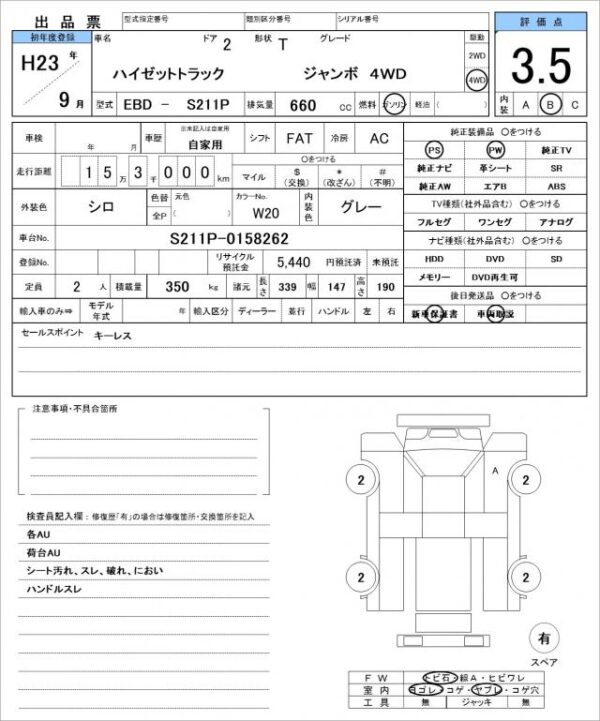 出品票 型式指定番号 類別区分番号 シリアル番号 評価点
初年度登録 車名 ドア 2 形状 T グレード 駆動
H23 年 ハイゼットトラック ジャンボ 4WD 2WD 3.5
9 月 4WD
型式 EBD - S211P 排気量 660 cc 燃料 ガソリン 軽油 ( ) 内装 A B C
車検 年 月 車歴 出来記入は自家用 自家用 シフト FAT 冷房 AC 純正装備品 〇をつける
PS PW 純正TV
走行距離 15万3千000km 〇をつける マイル $ (交換) * (改ざん) # (不明) 純正ナビ 革シート SR
純正AW エアB ABS
外装色 シロ 色替 全P 元色 ( ) カラーNo. W20 内装色 グレー TV種類(社外品含む) 〇をつける
フルセグ ワンセグ アナログ
車台No. S211P-0158262 ナビ種類(社外品含む) 〇をつける
登録No. リサイクル預託金 5,440 円預託済 未預託 HDD DVD SD
メモリー DVD再生可
定員 2 人 積載量 350 kg 諸元 長さ 339 幅 147 高さ 190 後日発送品 〇をつける
輸入車のみ⇒ モデル年式 年 輸入区分 ディーラー 並行 ハンドル 左 右 新車保証書 車両取説
セールスポイント キーレス
注意事項・不具合箇所
A
2 2
検査員記入欄：修復歴「有」の場合は修復箇所・交換箇所を記入
各AU
荷台AU
シート汚れ、スレ、破れ、におい
ハンドルスレ
2 2
有
スペア
FW トビ石・線A・ヒビワレ
室内 ヨゴレ・コゲ・ヤブレ・コゲ穴
工具 無 ジャッキ 無